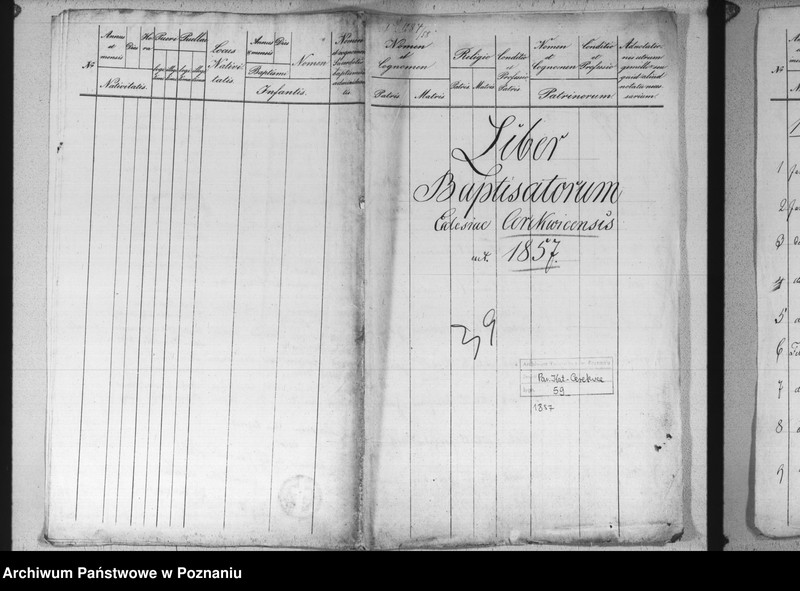 Nº
Annus
et
mensis
Dies
Ho
ra
Pueri
Puellae
Locus
Nativi
tatis
Annus
et mensis
Dies
Baptismi
Nomen
Nomen
Nativitatis.
Infantis.
tis
Nomen
et
Cognomen
Religio
Conditio
et
Professio
Patris
Nomen
et
Cognomen
Conditio
et
Professio
Patris
Matris
Patris
Matris
Patrinorum
Liber
Baptisatorum
Eclesiae Cerekwicensis
1857.
39
Par. Kat. Cerekwica
59
1857
Nº
1
2
3
4
5
6
7
8
9
Archiwum Państwowe w Poznaniu